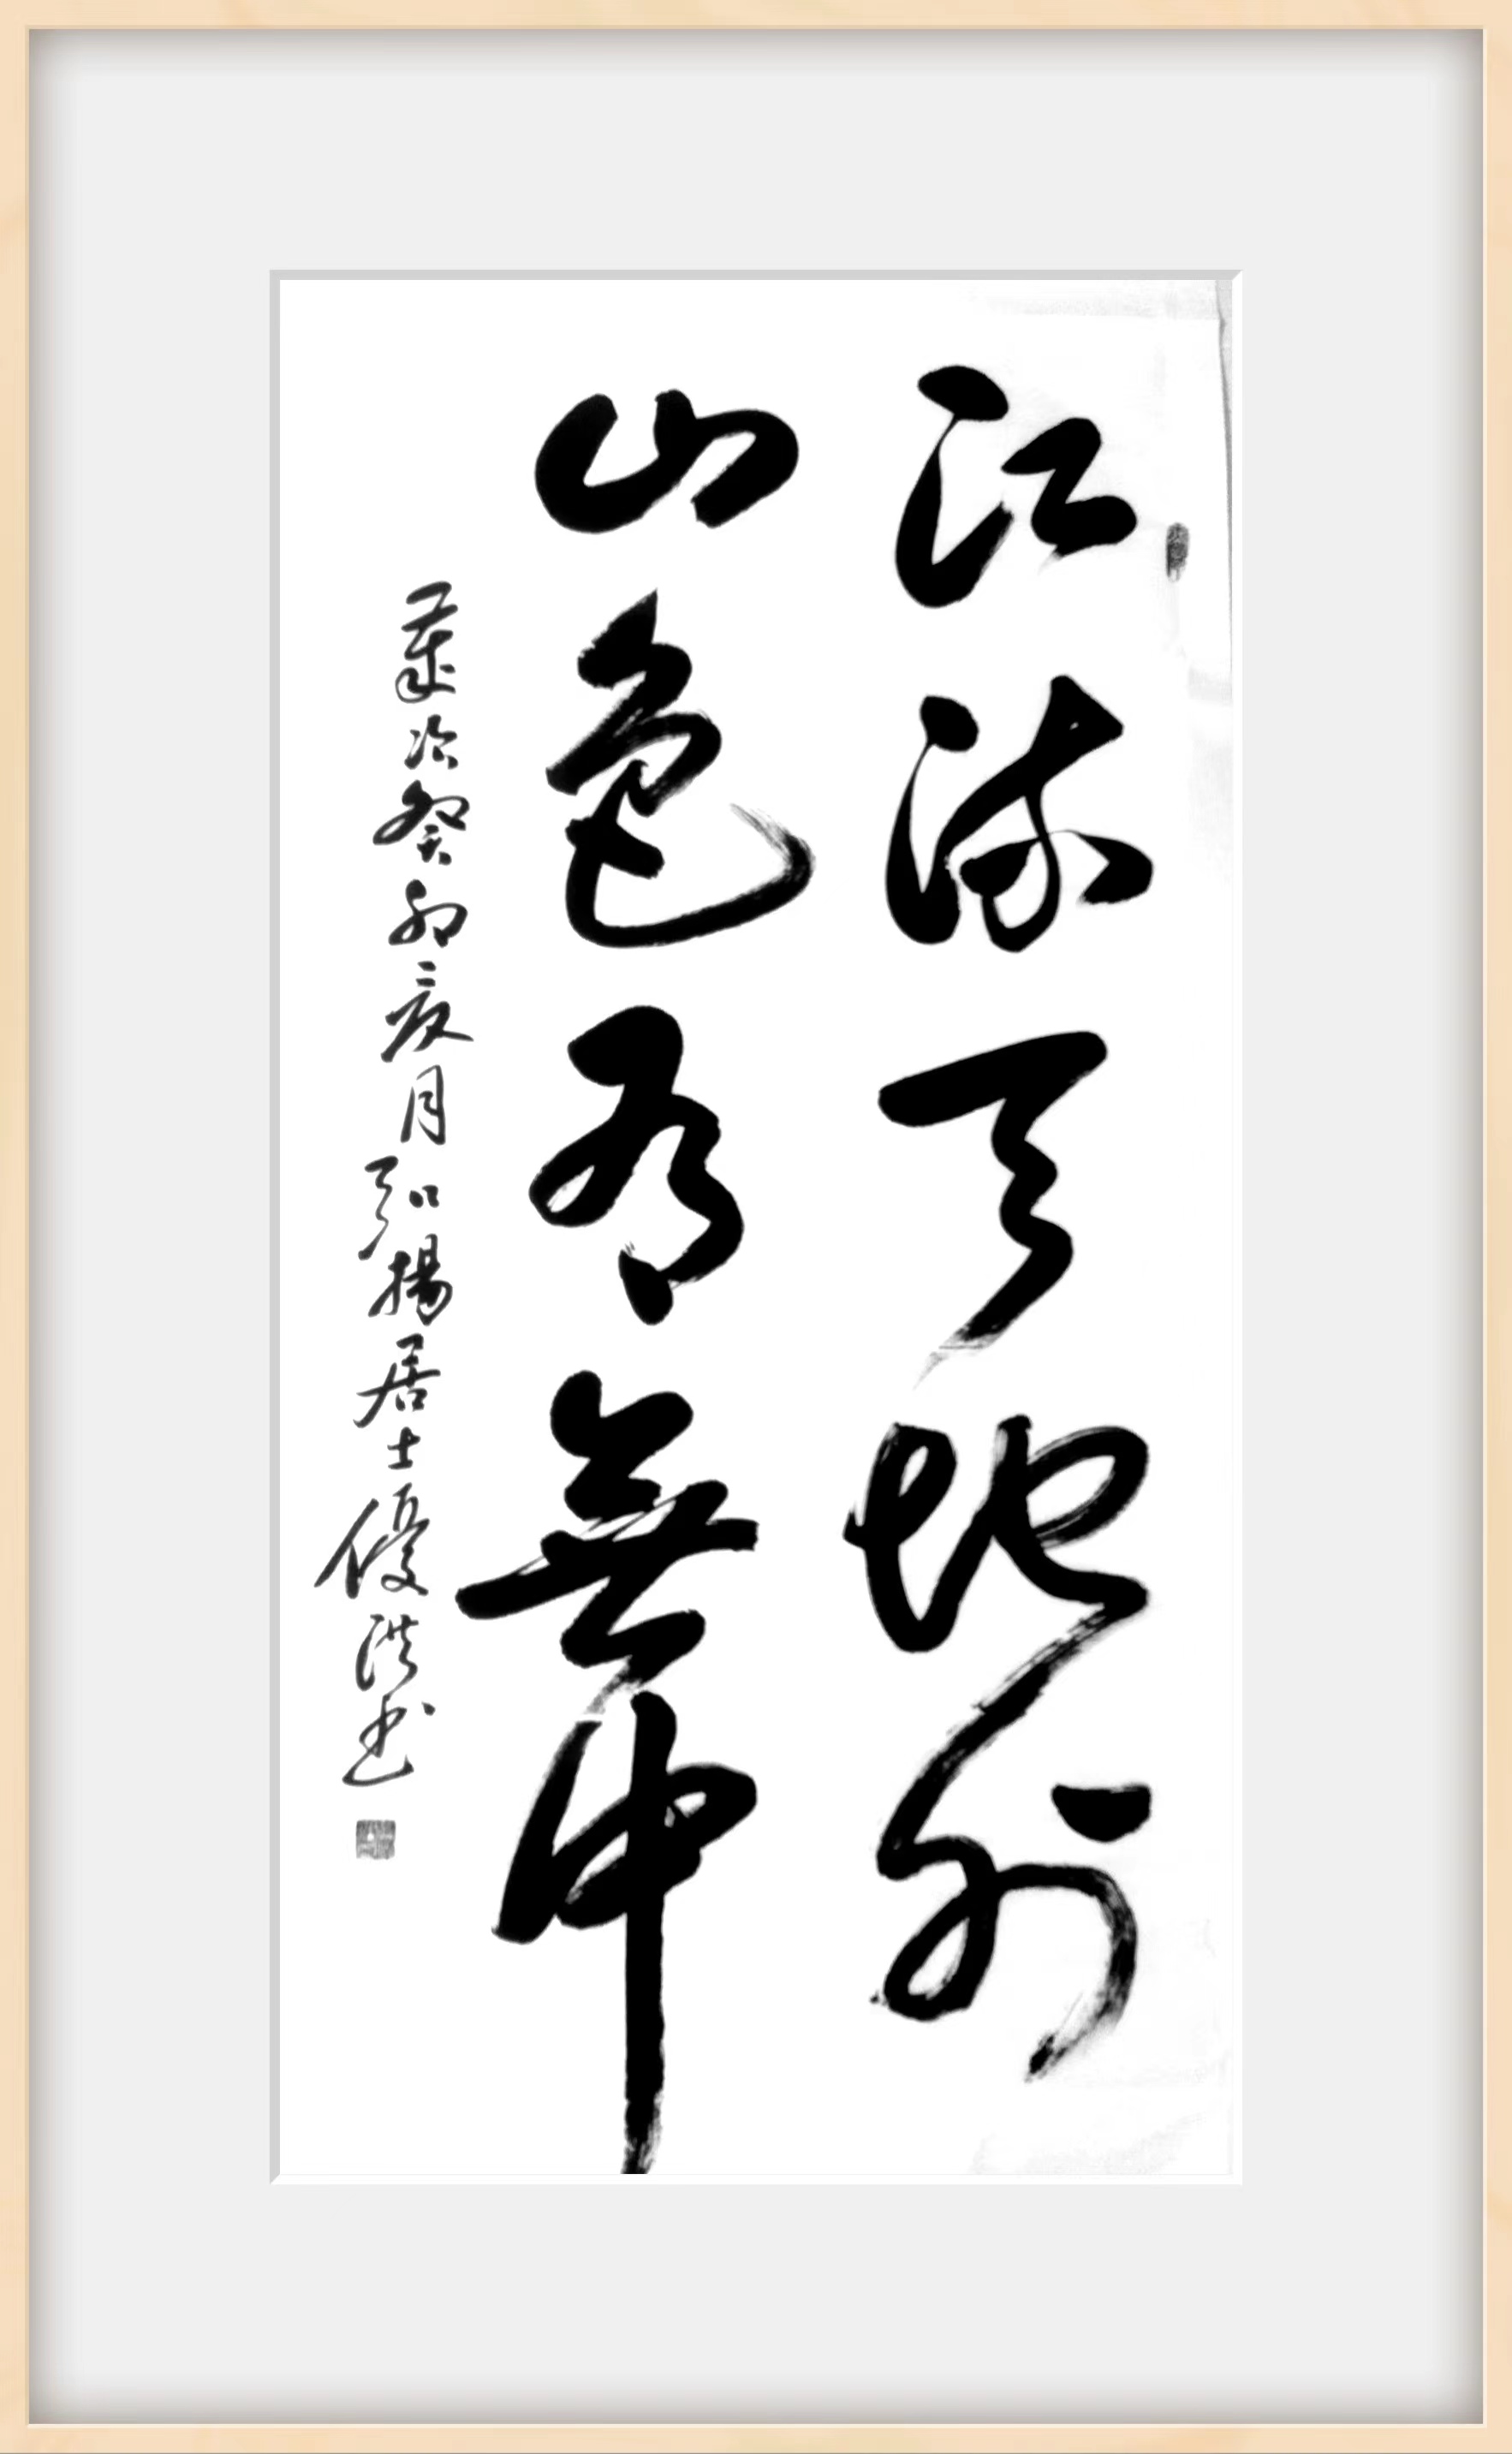 江流天地外
山色有無中
歲次癸卯亥月弘揚居士優洪書